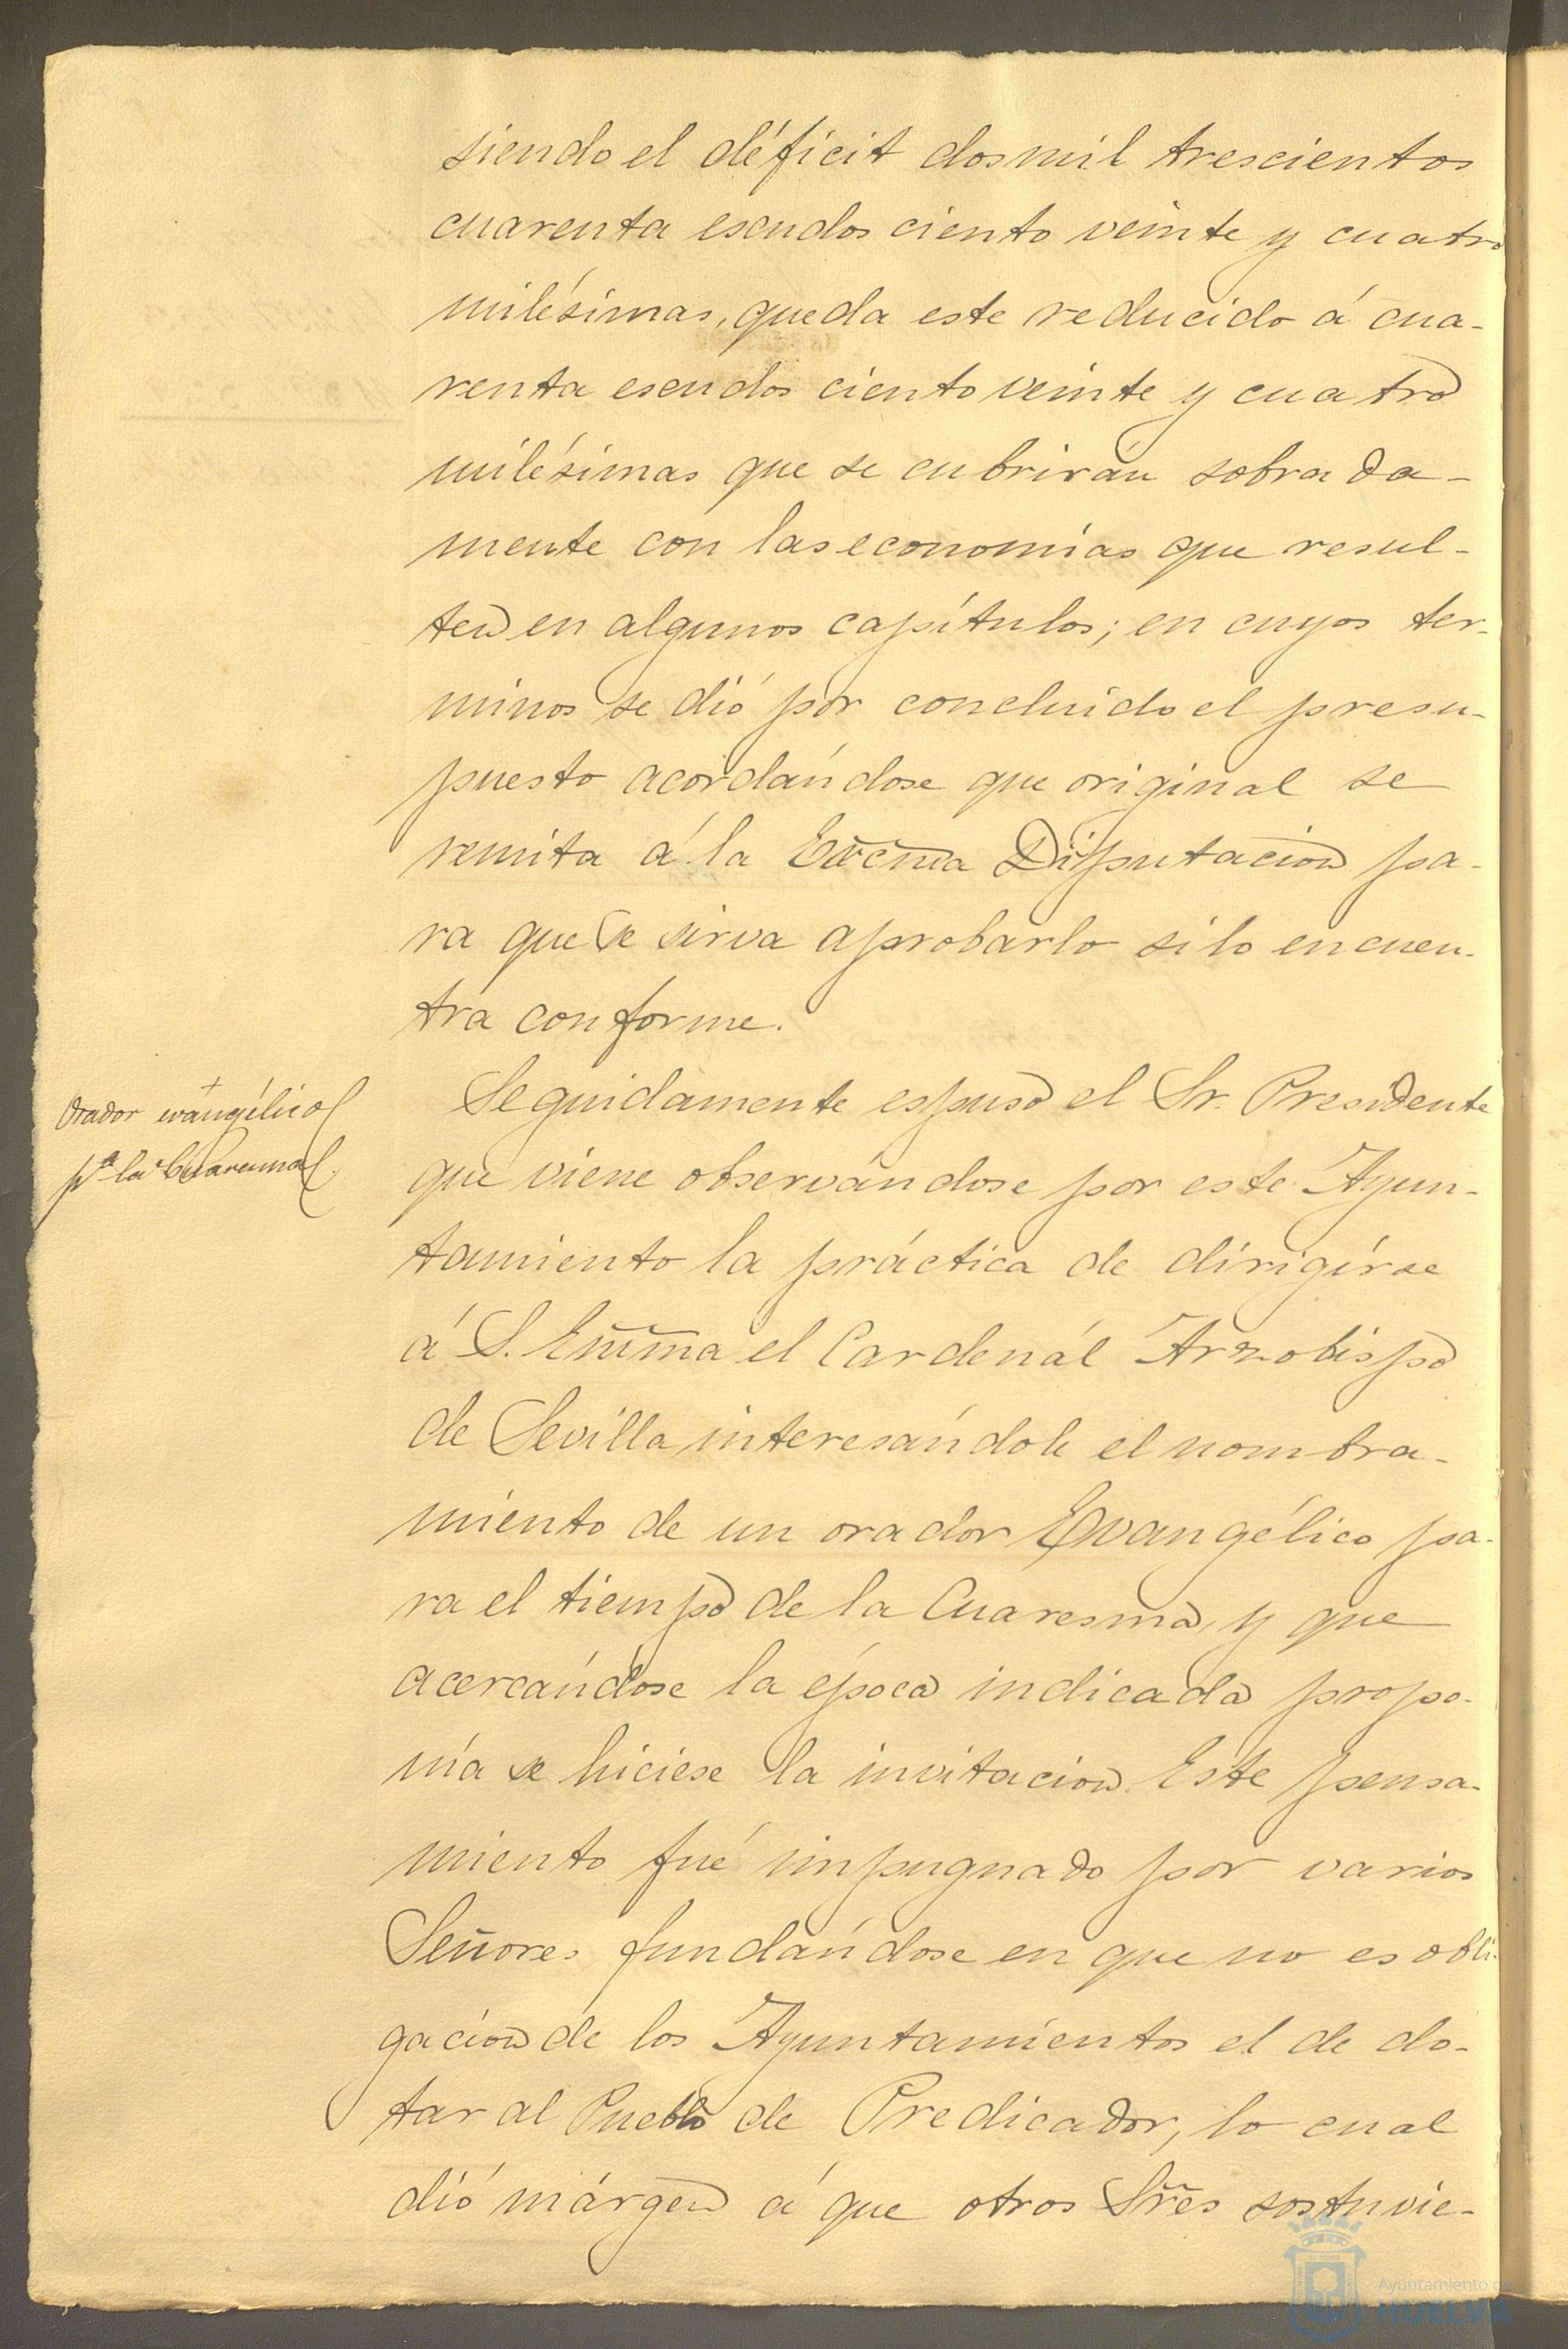 siendo el déficit dosmil trescientos
cuarenta escudos ciento veinte y cuatro
milésimas, queda este reducido á cua-
renta escudos ciento veinte y cuatro
milésimas que se cubrirán sobrada-
mente con las economías que resul-
ten en algunos capítulos; en cuyos tér-
minos se dió por concluido el presu-
puesto acordándose que original se
remita á la Excma Diputacion pa-
ra que se sirva aprobarlo si lo encuen-
tra conforme.
Orador evangélico
pª la Cuaresma.
Seguidamente espuso el Sr. Presidente
que viene observándose por este Ayun-
tamiento la práctica de dirigirse
á S. Emma el Cardenál Arzobispo
de Sevilla interesándole el nombra-
miento de un orador Evangélico pa-
ra el tiempo de la Cuaresma, y que
acercándose la época indicada propo-
nía se hiciese la invitacion. Este pensa-
miento fué impugnado por varios
Señores fundándose en que no es obli-
gacion de los Ayuntamientos el de do-
tar al Pueblo de Predicador, lo cual
dió márgen á que otros Sres sostuvie-
Ayuntamiento de
HUELVA